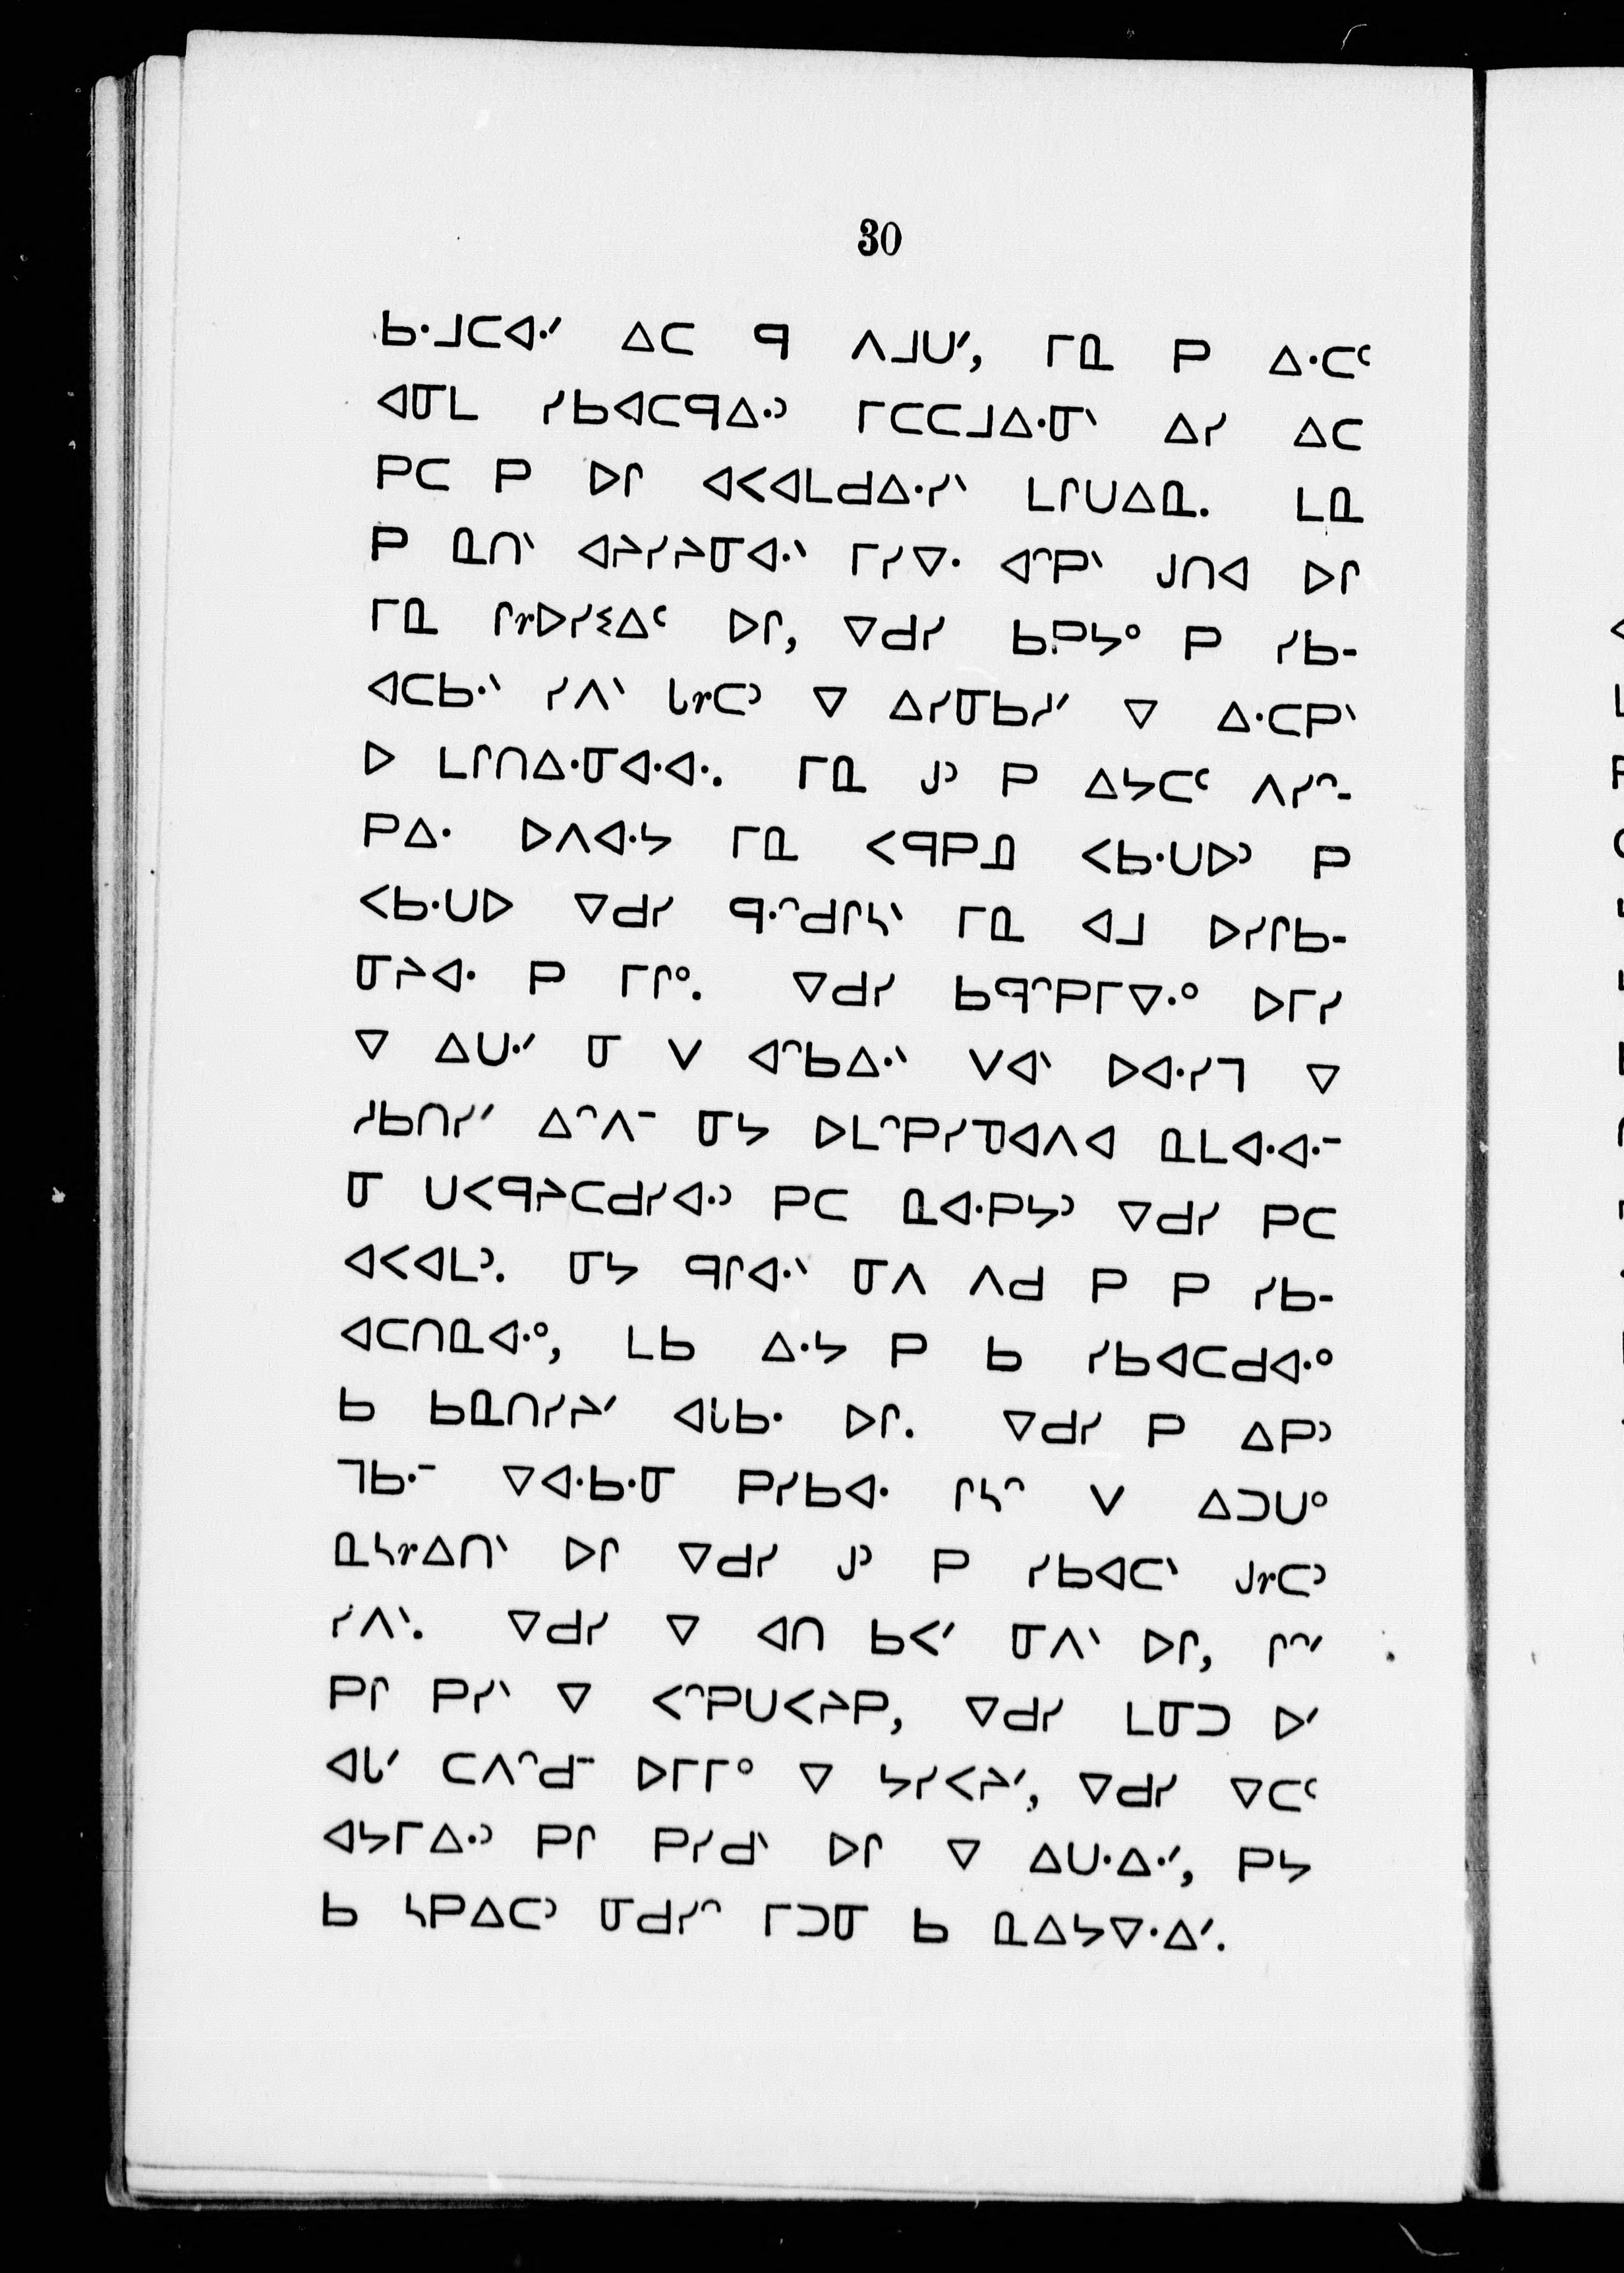 30
ᑲᐧᒧᑕᐊᐧᐟ ᐃᑕ ᑫ ᐱᒧᑌᐟ, ᒥᓇ ᑭ ᐃᐧᑕᑦ
ᐊᓂᒪ ᓯᑲᐊᑕᑫᐃᐧᐣ ᒥᑕᑕᒧᐃᐧᓂᐠ ᐃᓯ ᐃᑕ
ᑭᑕ ᑭ ᐅᒋ ᐊᐸᐊᒪᑯᐃᐧᓯᐠ ᒪᒋᑌᐃᓇ. ᒪᓇ
ᑭ ᓇᑎᐠ ᐊᔨᓯᔨᓂᐊᐧᐠ ᒥᓯᐁᐧ ᐊᐢᑭᐠ ᒍᑎᐊ ᐅᒋ
ᒥᓇ ᒋᕒᐅᓯᓭᐃᑦ ᐅᒋ, ᐁᑯᓯ ᑲᑭᔭᐤ ᑭ ᓯᑲ-
ᐊᑕᑲᐧᐠ ᓯᐱᐠ ᒐᕒᑕᐣ ᐁ ᐃᓯᓂᑲᓱᐟ ᐁ ᐃᐧᑕᑭᐠ
ᐅ ᒪᒋᑎᐃᐧᓂᐊᐧᐊᐧ. ᒥᓇ ᒍᐣ ᑭ ᐃᔭᑕᑦ ᐱᓯᐢ-
ᑭᐃᐧ ᐅᐱᐊᐧᔭ ᒥᓇ ᐸᑫᑭᓄ ᐸᑲᐧᑌᐅᐣ ᑭ
ᐸᑲᐧᑌᐅ ᐁᑯᓯ ᑫᐧᐢᑯᒋᓴᐠ ᒥᓇ ᐊᒧ ᐅᓯᒋᑲ-
ᓂᔨᐊᐧ ᑭ ᒥᒋᐤ. ᐁᑯᓯ ᑲᑫᐢᑭᒥᐁᐧᐤ ᐅᒥᓯ
ᐁ ᐃᑌᐧᐟ ᓂ ᐯ ᐊᐢᑲᐃᐧᐠ ᐯᐊᐠ ᐅᐊᐧᓯᒣ ᐁ
ᓱᑲᑎᓯᐟ ᐃᐢᐱᐨ ᓂᔭ ᐅᒪᐢᑭᓯᓀᐊᐱᐊ ᓇᒪᐊᐧᐊᐧᐨ
ᓂ ᑌᐸᑫᔨᑕᑯᓯᐊᐧᐣ ᑭᑕ ᓇᐊᐧᑭᔭᐣ ᐁᑯᓯ ᑭᑕ
ᐊᐸᐊᒪᐣ. ᓂᔭ ᑫᒋᐊᐧᐠ ᓂᐱ ᐱᑯ ᑭ ᑭ ᓯᑲ-
ᐊᑕᑎᓇᐊᐧᐤ, ᒪᑲ ᐃᐧᔭ ᑭ ᑲ ᓯᑲᐊᑕᑯᐊᐧᐤ
ᑲ ᑲᓇᑎᓯᔨᐟ ᐊᒐᑲᐧ ᐅᒋ. ᐁᑯᓯ ᑭ ᐃᑭᐣ
ᒣᑲᐧᐨ ᐁᐊᐧᑲᐧᓂ ᑭᓯᑲᐊᐧ ᒋᓴᐢ ᐯ ᐃᑐᑌᐤ
ᓇᓴᕒᐃᑎᐠ ᐅᒋ ᐁᑯᓯ ᒍᐣ ᑭ ᓯᑲᐊᑕᐠ ᒍᕒᑕᐣ
ᓯᐱᐠ. ᐁᑯᓯ ᐁ ᐊᑎ ᑲᐸᐟ ᓂᐱᐠ ᐅᒋ, ᒋᐢᐟ
ᑭᒋ ᑭᓯᐠ ᐁ ᐸᐢᑭᑌᐸᔨᑭ, ᐁᑯᓯ ᒪᓂᑐ ᐅᐟ
ᐊᒐᐟ ᑕᐱᐢᑯᐨ ᐅᒥᒥᐤ ᐁ ᔭᓯᐸᔨᐟ, ᐁᑯᓯ ᐁᑕᑦ
ᐊᔭᒥᐃᐧᐣ ᑭᒋ ᑭᓯᑯᐠ ᐅᒋ ᐁ ᐃᑌᐧᐃᐧᐟ, ᑭᔭ
ᑲ ᓴᑭᐃᑕᐣ ᓂᑯᓯᐢ ᒥᑐᓂ ᑲ ᓇᐃᔭᐁᐧᐃᐟ.